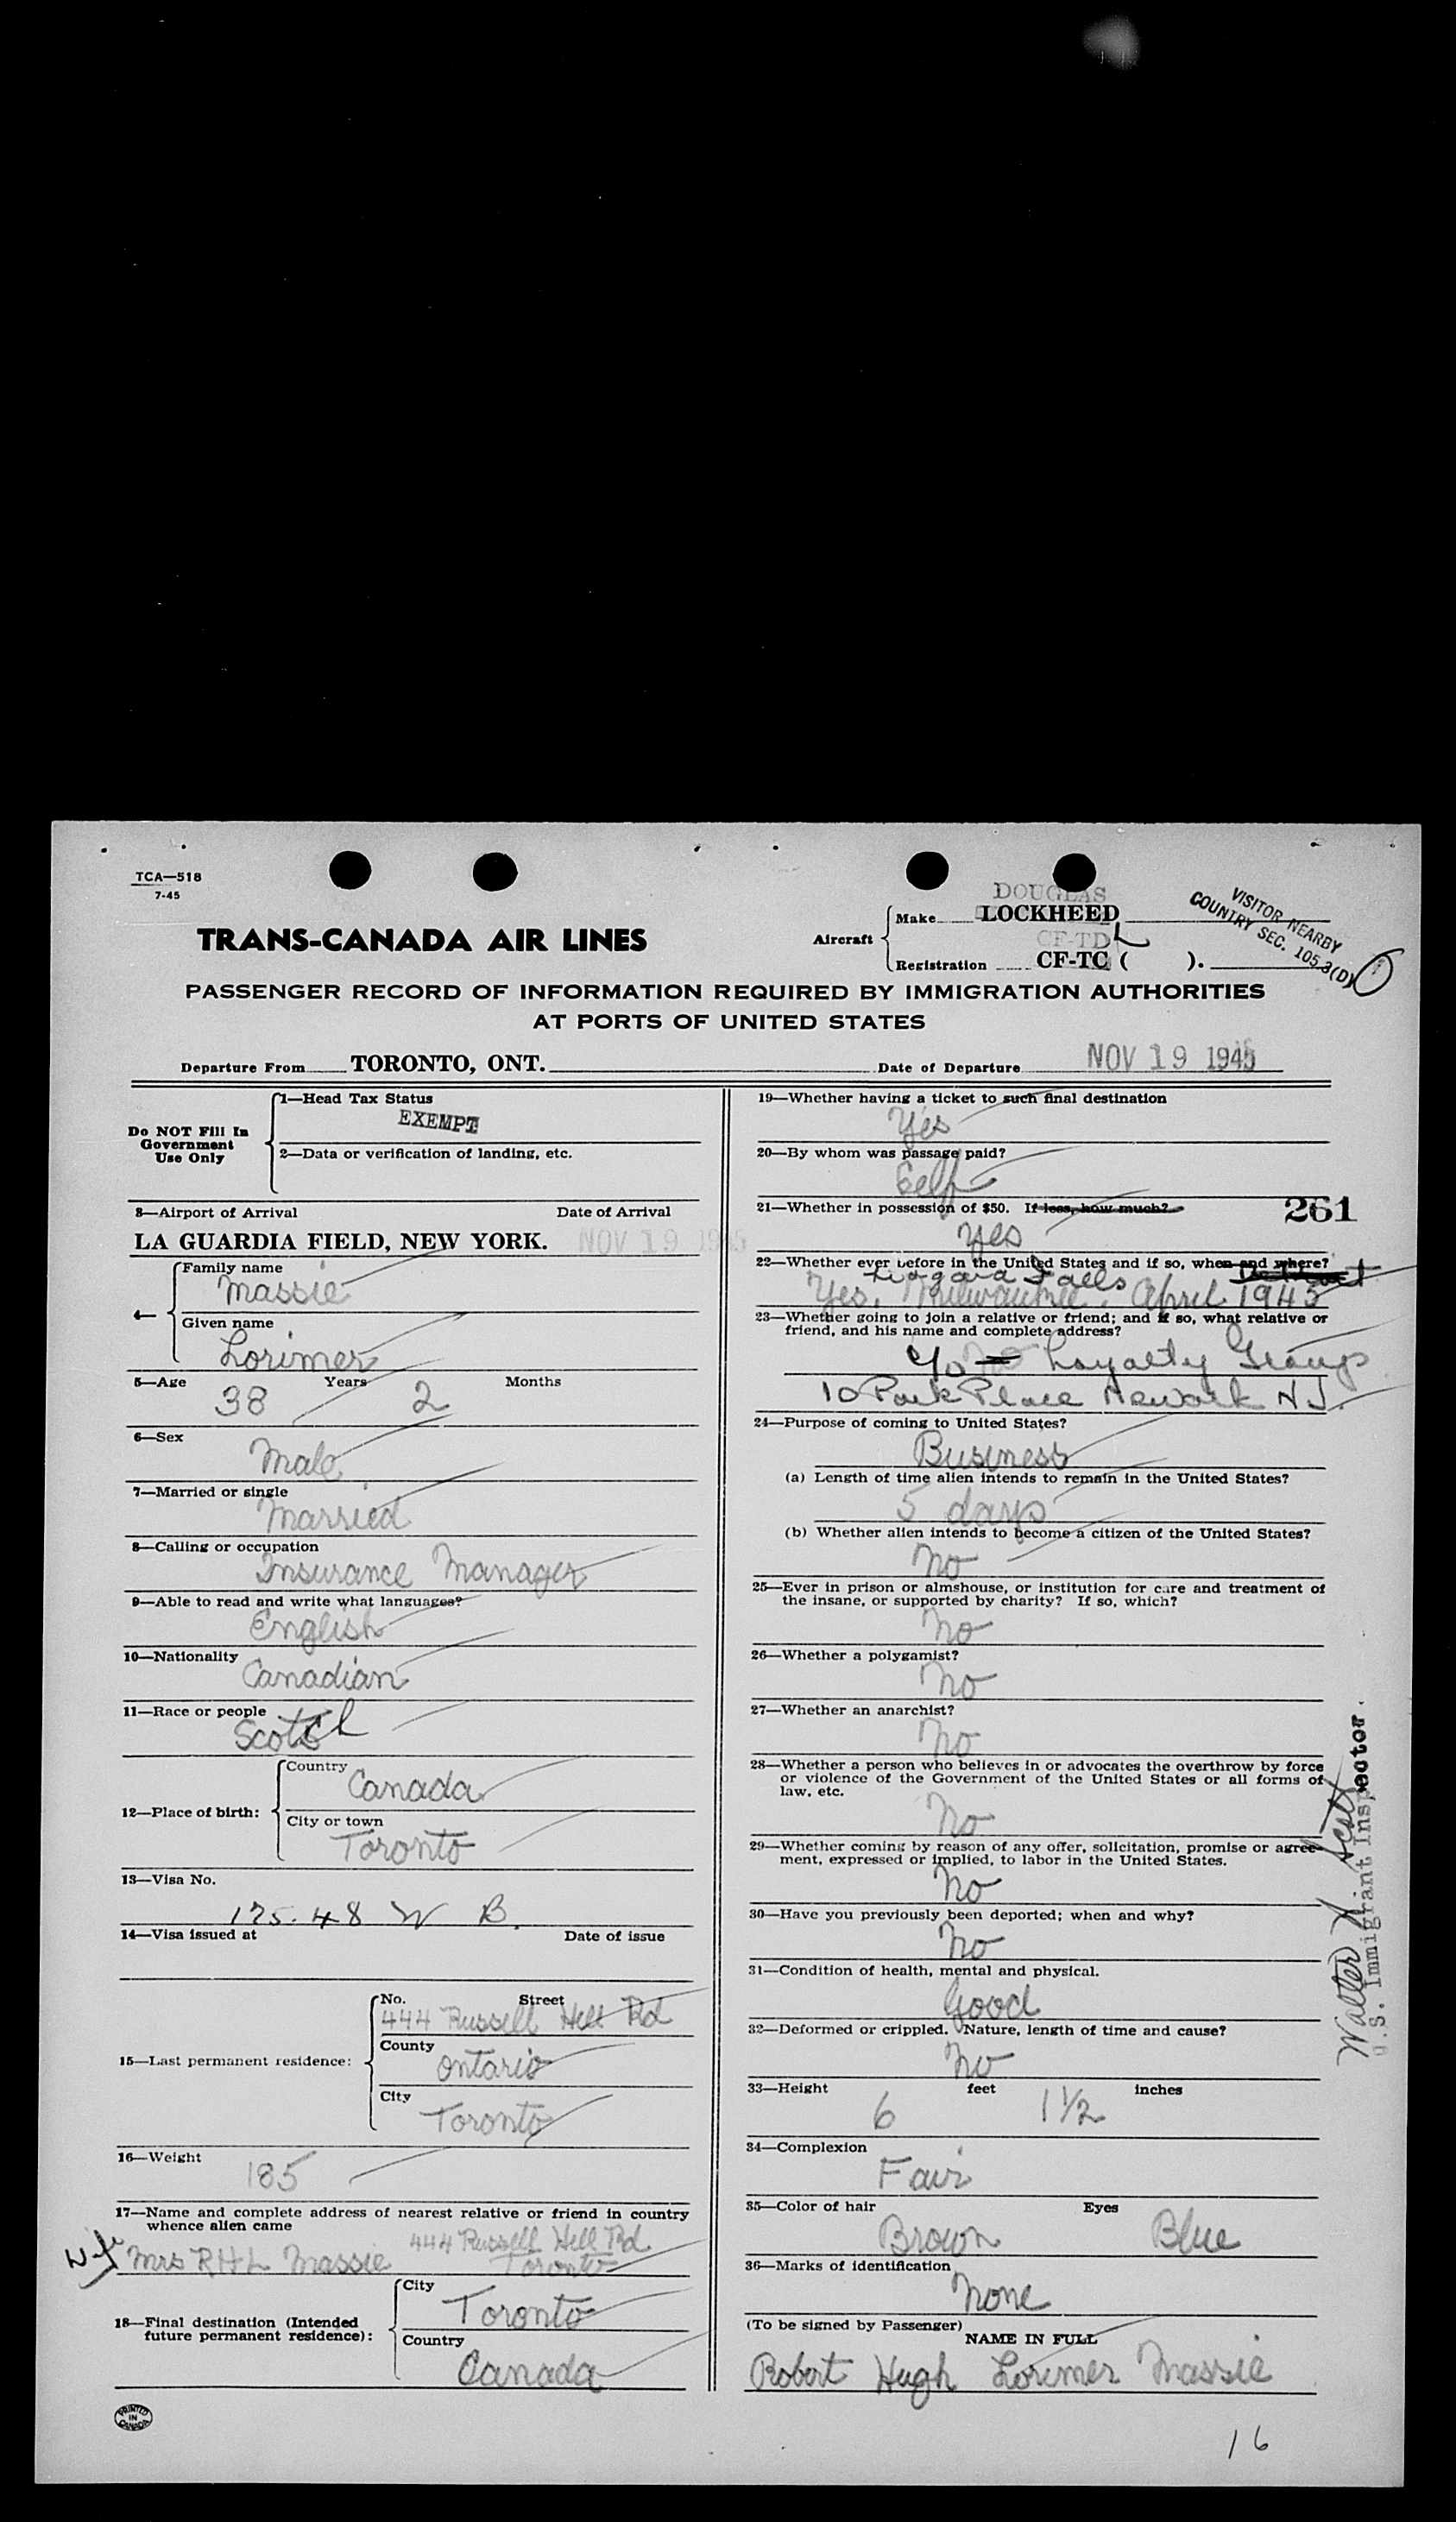 TCA—518
7-45
TRANS-CANADA AIR LINES
Aircraft
DOUGLAS
Make LOCKHEED
CF-TD L
Registration CF-TC ( ).
VISITOR NEARBY
COUNTRY SEC. 105.3(D)
PASSENGER RECORD OF INFORMATION REQUIRED BY IMMIGRATION AUTHORITIES
AT PORTS OF UNITED STATES
Departure From TORONTO, ONT. Date of Departure NOV 19 1945
Do NOT Fill In
Government
Use Only
1—Head Tax Status
EXEMPT
2—Data or verification of landing, etc.
3—Airport of Arrival Date of Arrival
LA GUARDIA FIELD, NEW YORK. NOV 19 1945
4—
Family name
Massie
Given name
Lorimer
5—Age Years Months
38 2
6—Sex
Male
7—Married or single
Married
8—Calling or occupation
Insurance Manager
9—Able to read and write what languages?
English
10—Nationality
Canadian
11—Race or people
Scotch
12—Place of birth:
Country
Canada
City or town
Toronto
13—Visa No.
175.48 W B.
14—Visa issued at Date of issue
15—Last permanent residence:
No. Street
444 Russell Hill Rd
County
Ontario
City
Toronto
16—Weight
185
17—Name and complete address of nearest relative or friend in country
whence alien came
444 Russell Hill Rd
wife Mrs R H L Massie Toronto
18—Final destination (Intended
future permanent residence):
City
Toronto
Country
Canada
PRINTED
IN
CANADA
19—Whether having a ticket to such final destination
Yes
20—By whom was passage paid?
Self
21—Whether in possession of $50. If less, how much?
261
Yes
22—Whether ever before in the United States and if so, when and where?
Niagara Falls
Yes, Milwaukee, April 1945
23—Whether going to join a relative or friend; and if so, what relative or
friend, and his name and complete address?
c/o Loyalty Group
10 Park Place Newark N J.
24—Purpose of coming to United States?
Business
(a) Length of time alien intends to remain in the United States?
5 days
(b) Whether alien intends to become a citizen of the United States?
No
25—Ever in prison or almshouse, or institution for care and treatment of
the insane, or supported by charity? If so, which?
No
26—Whether a polygamist?
No
27—Whether an anarchist?
No
28—Whether a person who believes in or advocates the overthrow by force
or violence of the Government of the United States or all forms of
law, etc.
No
29—Whether coming by reason of any offer, solicitation, promise or agree-
ment, expressed or implied, to labor in the United States.
No
30—Have you previously been deported; when and why?
No
31—Condition of health, mental and physical.
Good
32—Deformed or crippled. Nature, length of time and cause?
No
33—Height feet inches
6 1½
34—Complexion
Fair
35—Color of hair Eyes
Brown Blue
36—Marks of identification
None
(To be signed by Passenger)
NAME IN FULL
Robert Hugh Lorimer Massie
Walter N Scott
U.S. Immigrant Inspector.
16